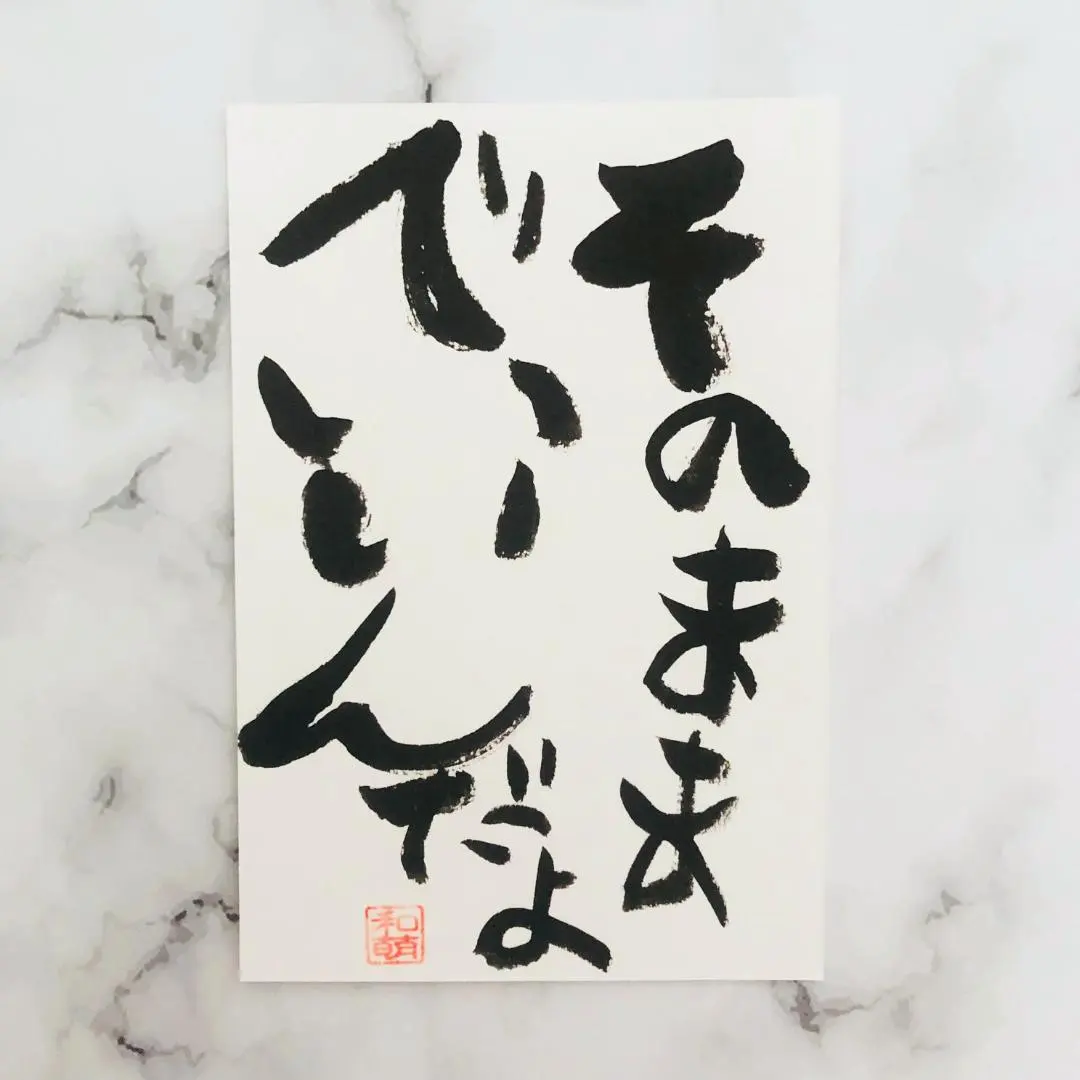 そのまま
でいいんだよ
和萌